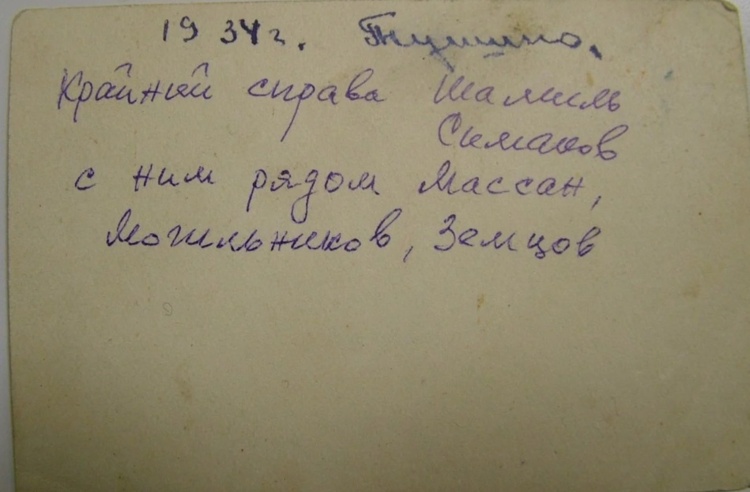 1934 г. Тушино.
Крайний справа Шамиль
Симаков
с ним рядом Массан,
Могильников, Земцов